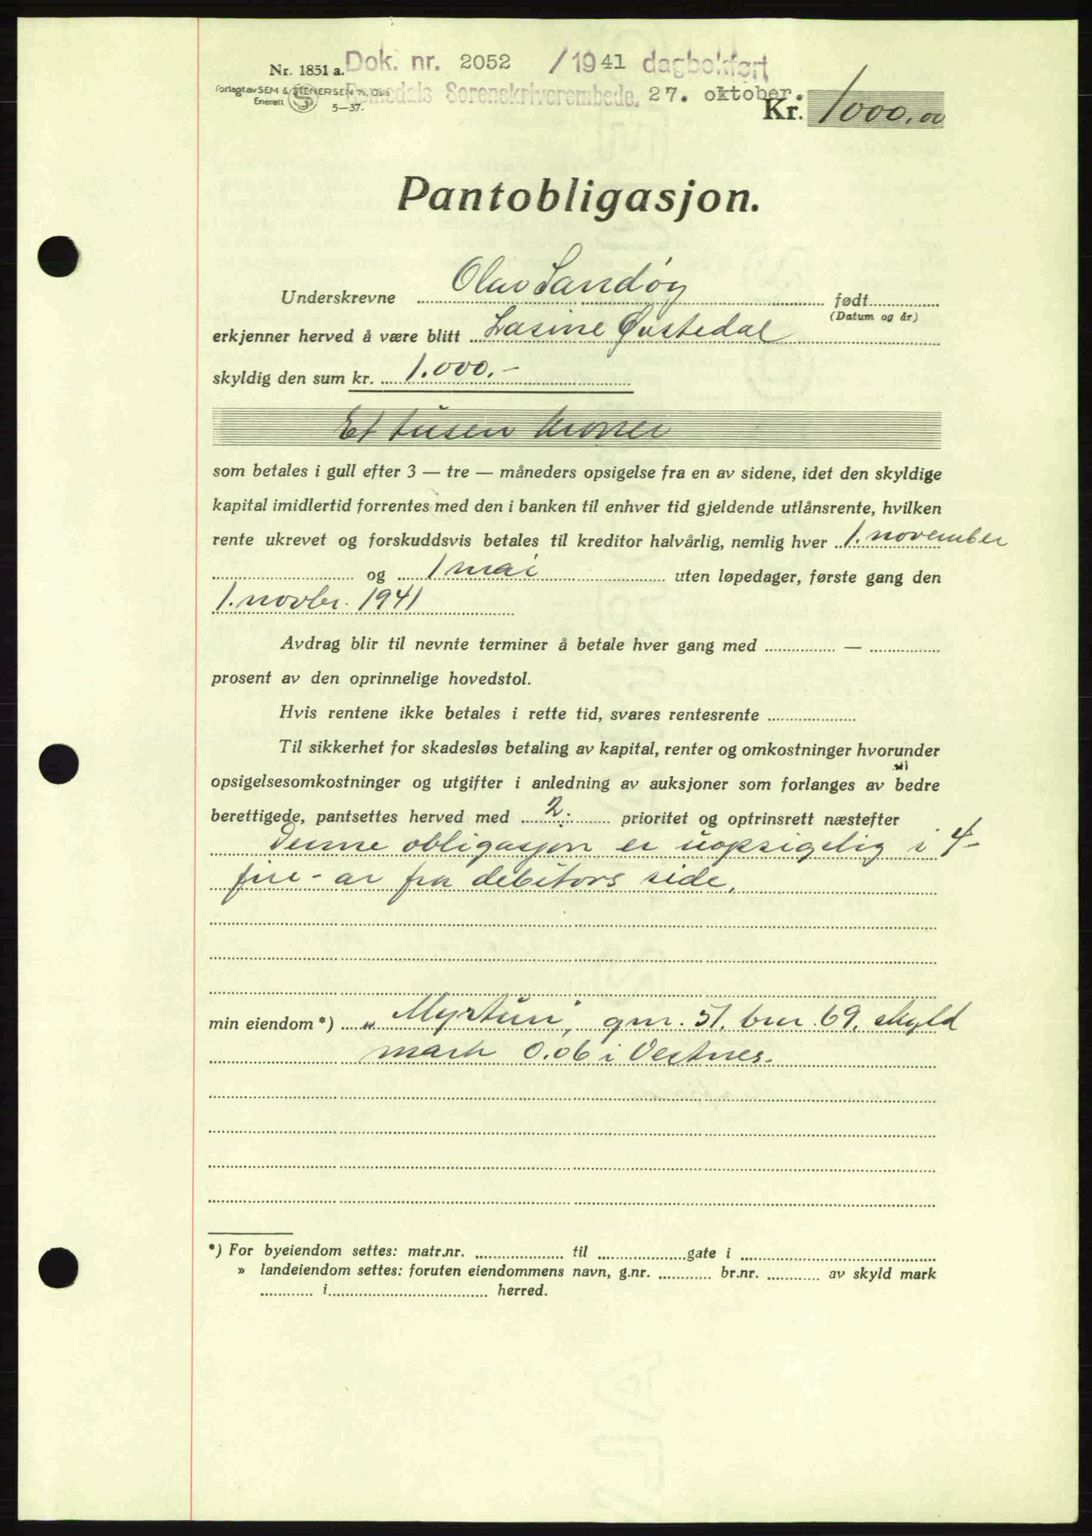 Nr. 1851 a. Dok. nr. 2052 /1941 dagbokført
Forlagt av SEM & STENERSEN A/S, Oslo
Romsdals Sorenskriverembede, 27. oktober.
Enerett
5—37.
Kr. 1000,00
Pantobligasjon.
Underskrevne Olav Sandøy født
(Datum og år)
erkjenner herved å være blitt Lasine Øvstedal
skyldig den sum kr. 1.000.-
Et tusen kroner
som betales i gull efter 3 — tre — måneders opsigelse fra en av sidene, idet den skyldige
kapital imidlertid forrentes med den i banken til enhver tid gjeldende utlånsrente, hvilken
rente ukrevet og forskuddsvis betales til kreditor halvårlig, nemlig hver 1. november
og 1 mai uten løpedager, første gang den
1. novbr. 1941
Avdrag blir til nevnte terminer å betale hver gang med — 
prosent av den oprinnelige hovedstol.
Hvis rentene ikke betales i rette tid, svares rentesrente
Til sikkerhet for skadesløs betaling av kapital, renter og omkostninger hvorunder
opsigelsesomkostninger og utgifter i anledning av auksjoner som forlanges av bedre
berettigede, pantsettes herved med 2. prioritet og optrinsrett næstefter
Denne obligasjon er uopsigelig i 4-
fire- år fra debitors side.
min eiendom *) „Myrtun", gnr. 51. bnr. 69. skyld
mark 0.06 i Vestnes.
*) For byeiendom settes: matr.nr. til gate i
» landeiendom settes: foruten eiendommens navn, g.nr. br.nr. av skyld mark
i herred.